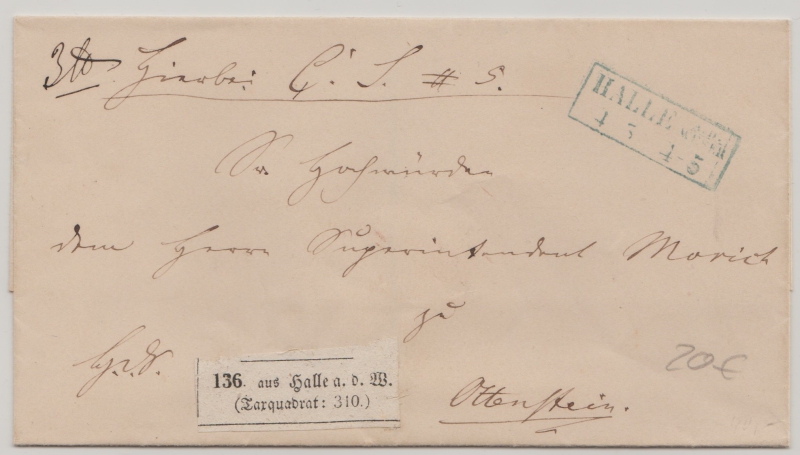 3 tb. Hierbei C. S. # 5.
HALLE
4 5 4-5
Sr Hochwürden
dem Herrn Superintendent Morich
zu
H.d.S.
136. aus Halle a. d. W.
(Taxquadrat: 310.)
Ottenstein.
20€